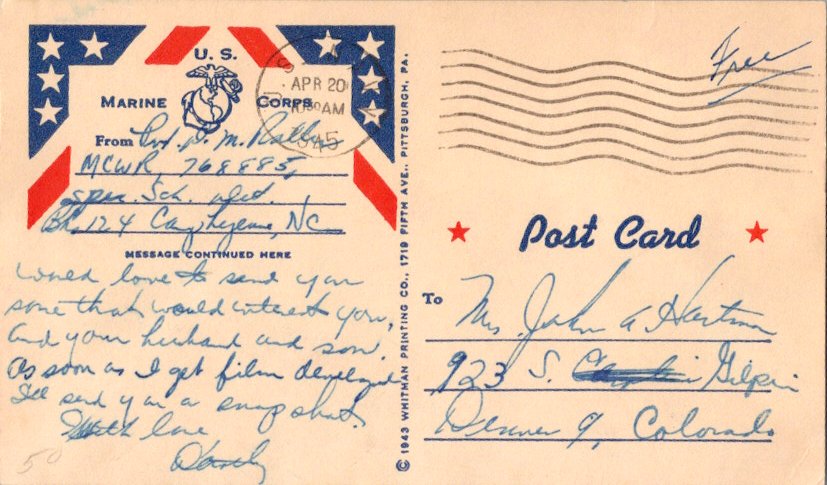 U. S.
MARINE CORPS
U. S.
APR 20
10 30 AM
1945
From Pvt. D. M.
MCWR, 768885,
Spec. Sch. Det.
Bk. 124 Camp Lejeune, NC
MESSAGE CONTINUED HERE
would love to send you
some that would interest you,
and your husband and son.
As soon as I get film developed
I'll send you a snapshot.
With love
Dorothy
50
© 1943 WHITMAN PRINTING CO., 1719 FIFTH AVE., PITTSBURGH, PA.
Free
Post Card
To Mrs. John A. Hartman
923 S. Gilpin
Denver 9, Colorado